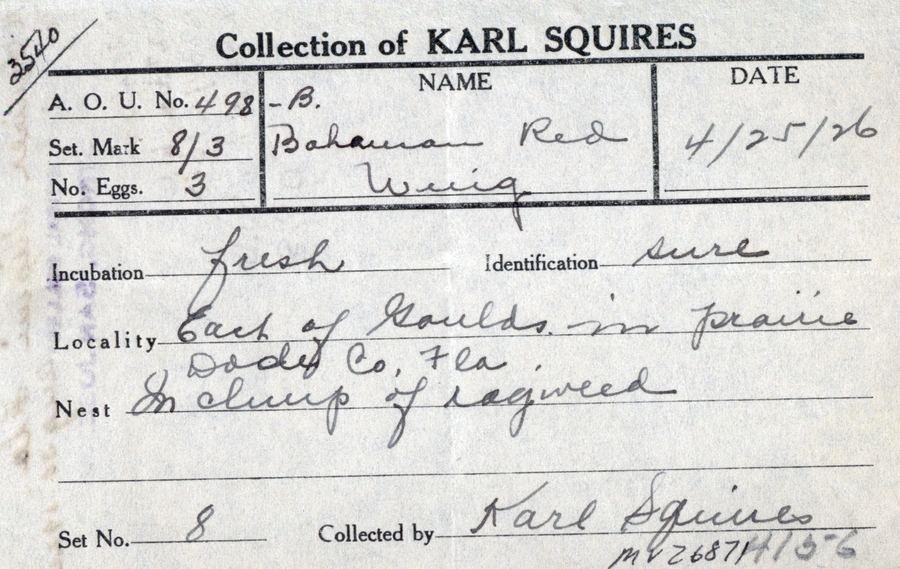 3540
Collection of KARL SQUIRES
A. O. U. No. 498 -B. NAME DATE
Set. Mark 8/3 Bahaman Red 4/25/26
No. Eggs. 3 Wing
Incubation fresh Identification sure
Locality East of Goulds in prairie
Dade Co, Fla
Nest In clump of ragweed
Set No. 8 Collected by Karl Squires